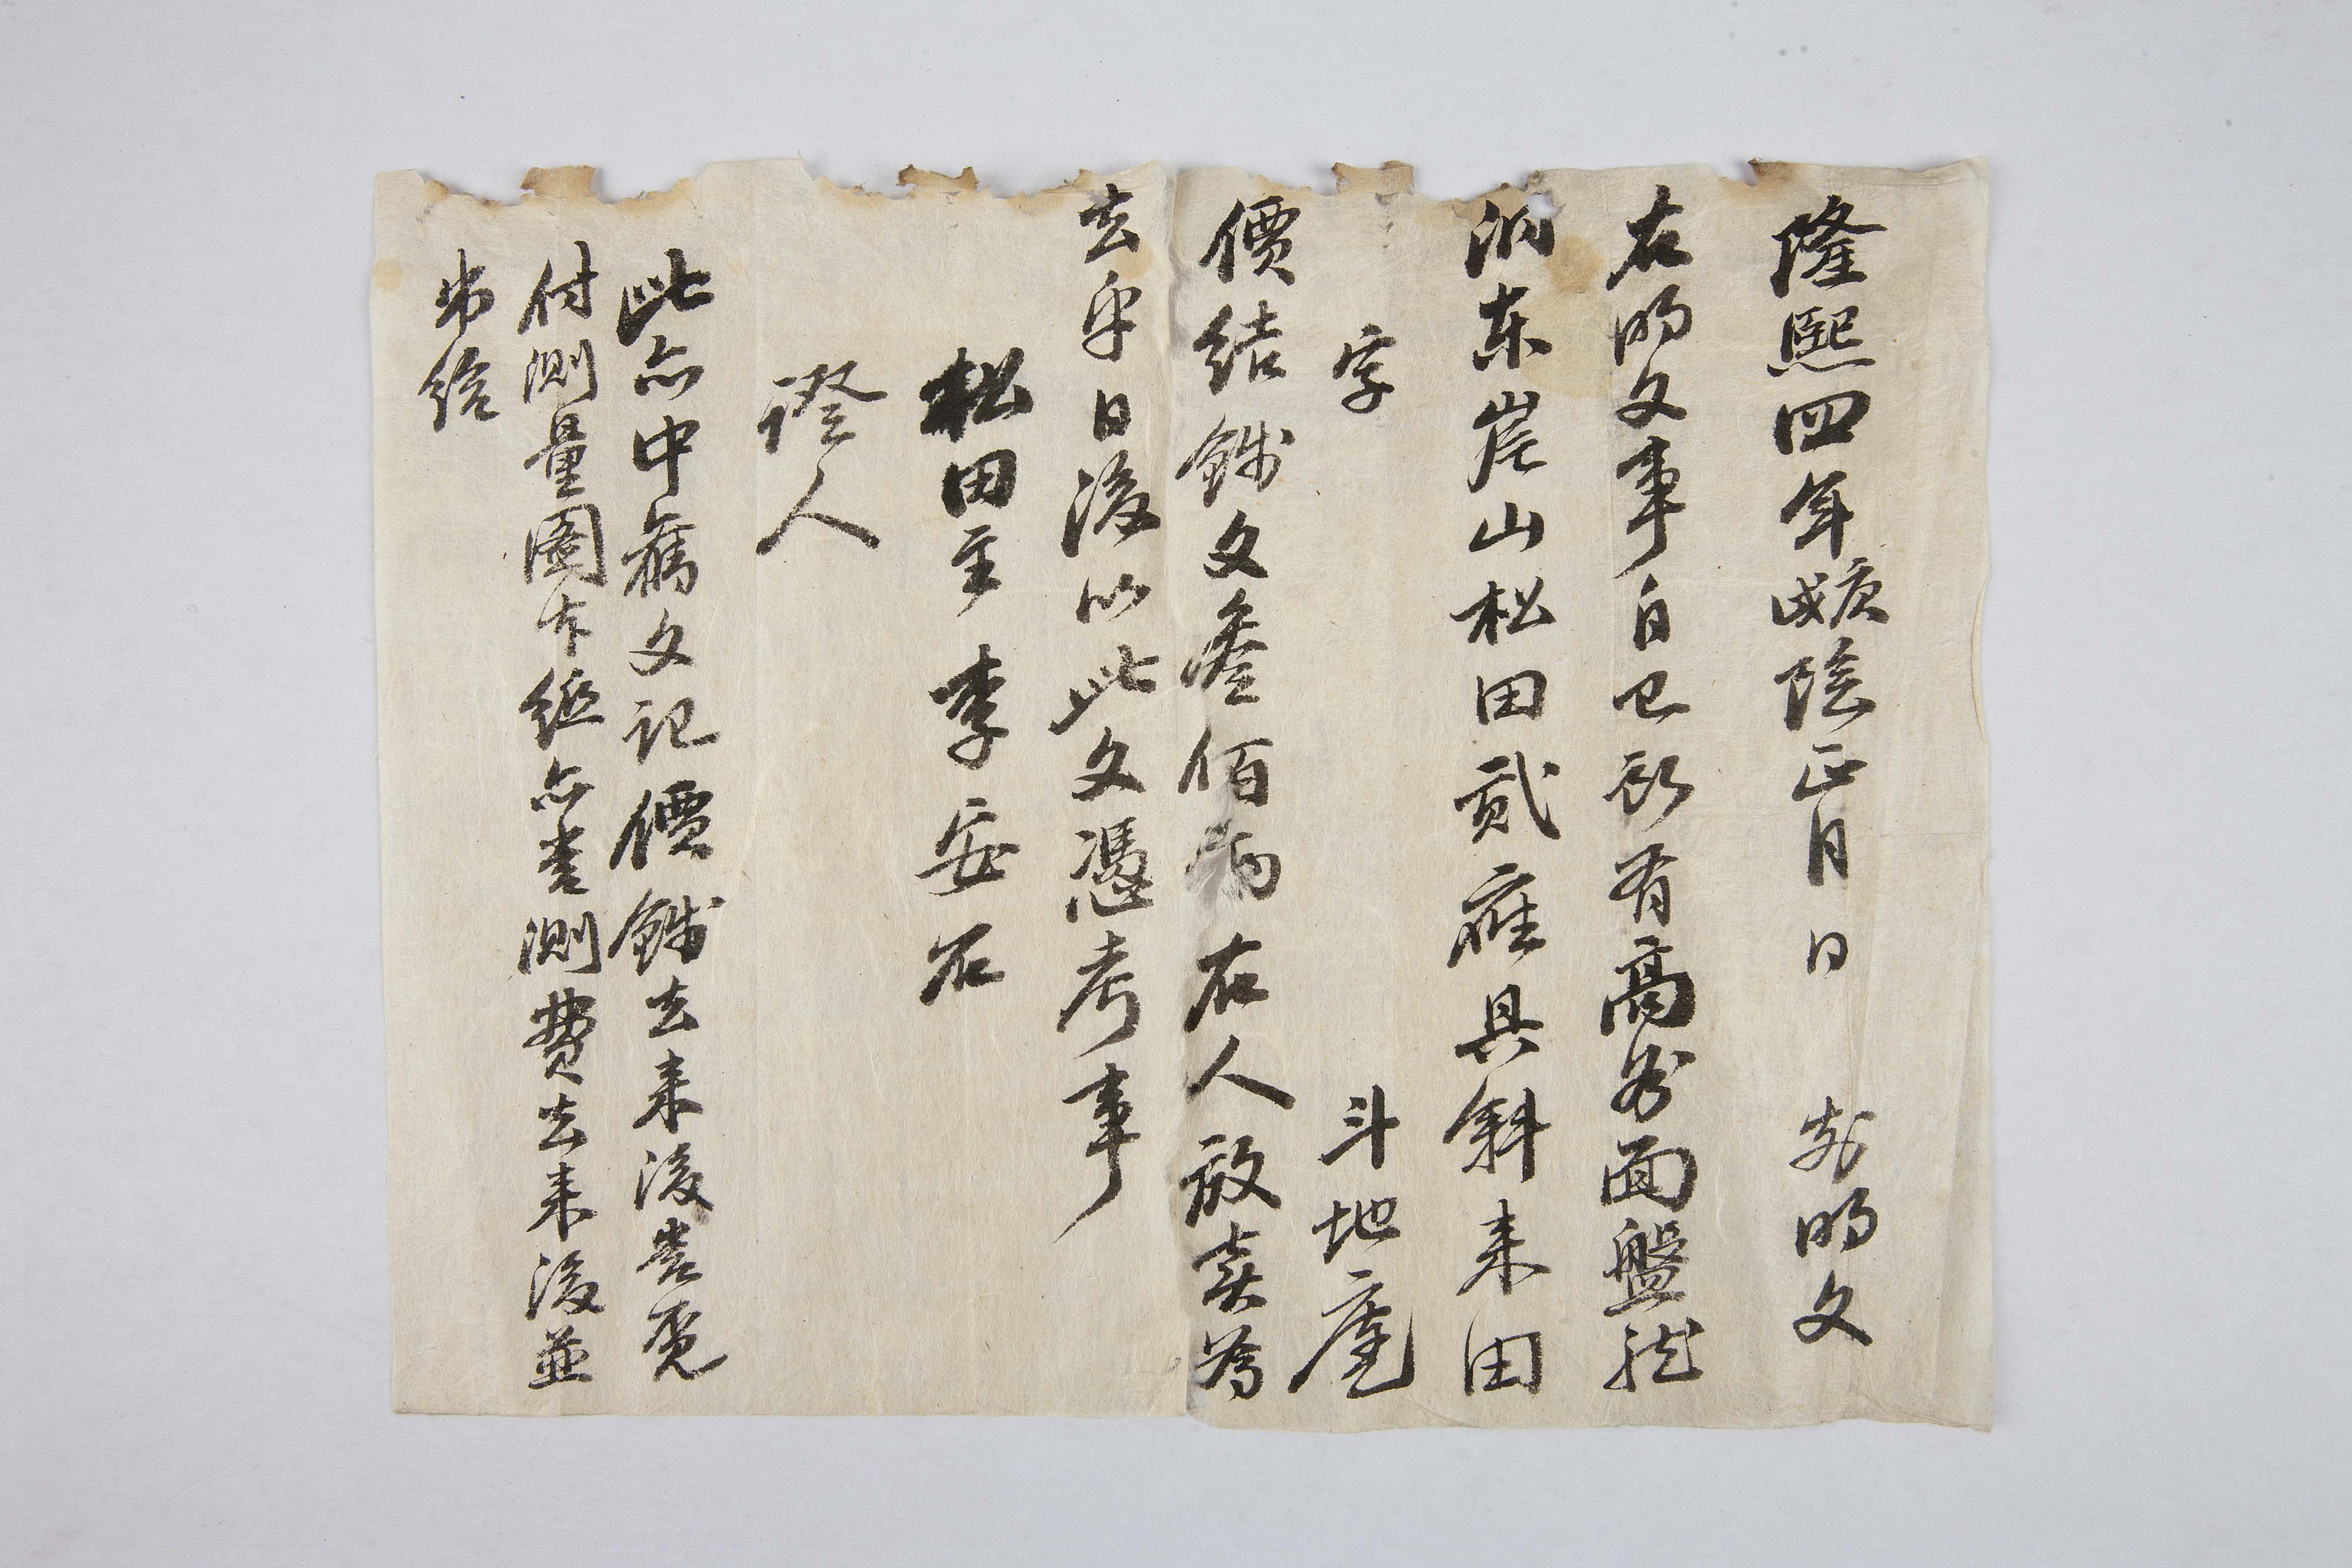 隆熙四年庚戌陰正月 日 前明文
右明文事自己所有高外面盤龍
洞東崖山松田貳座具斜来田
字 斗地庫
價結錢文叄佰兩右人放賣爲
去乎日後以此文憑考事
松田主 李安石
證人
此亦中舊文記價錢去来後書頉
付測量圖本紙亦書測費去来後並
出給